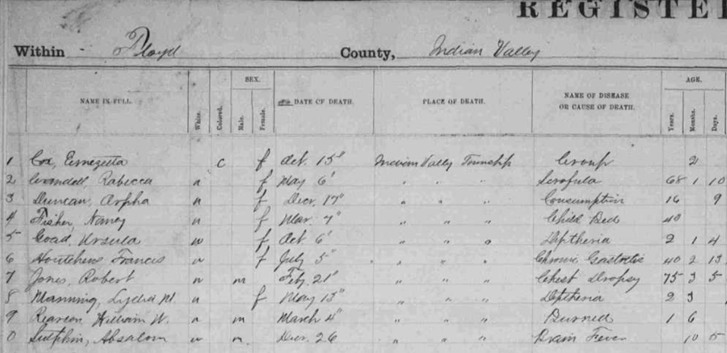 REGISTE
Within Floyd County, Indian Valley
NAME IN FULL. White. Colored. SEX. Male. Female. DATE OF DEATH. PLACE OF DEATH. NAME OF DISEASE OR CAUSE OF DEATH. AGE. Years. Months. Days.
1 Cox c f Oct 15" Indian Valley Township Croup 2
2 Rabecca w f May 6' " " " Scrofula 68 1 10
3 Duncan, Orpha w f Decr. 17" " " " Consumption 16 9
4 Fisher, Nancy w f Mar. 7" " " " Child Bed 40
5 Goad, Ursula w f Oct 6' " " " Diptheria 2 1 4
6 Houtchins Francis w f July 5" " " " Chronic 40 2 13
7 Jones, Robert w m Feby 21' " " " Chest Dropsy 75 3 5
8 Manning, Lydia M. w f May 13" " " " Diptheria 2 3
9 Reaveon William W. w m March 4' " " " Burned 1 6
0 Sutphin, Absalom w m Decr. 26 " " " Brain Fever 10 5